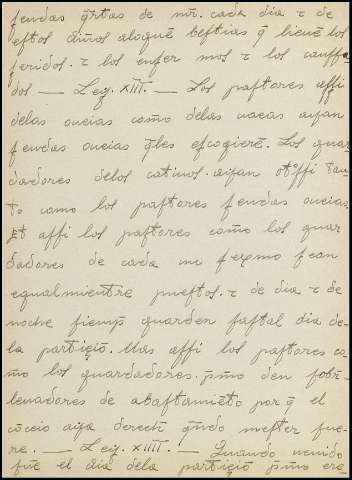 fendas q̃rtas de mr̃. cada dia τ de
estos dim̃os aloguē bestias q̃ lieuē los
feridos. τ los enfermos τ los canssa
dos — Ley. xiii. — Los pastores assi
delas oueias com̄o delas uacas ayan
sendas oueias q̃les escogierē. Los guar
dadores delos catiuos. ayan otossi tan
to como los pastores sendas oueias.
Et assi los pastores com̄o los guar
dadores de cada un sexmo sean
egualmientre puestos. τ de dia τ de
noche siemp̃ guarden fastal dia de
la partiçiō. Mas assi los pastores co
mo los guardadores. p̃mo den sobre
leuadores de abastamiēto por q̃ el
cōceio aya derech q̃ndo mester fue
re. — Ley. xiiii. — Quando uenido
fuē el dia dela partiçiō p̃mo ere